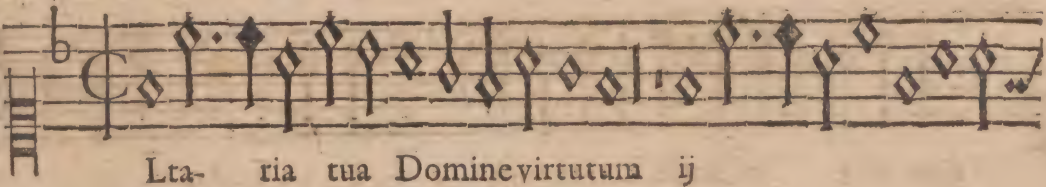 Lta- ria tua Domine virtutum ij